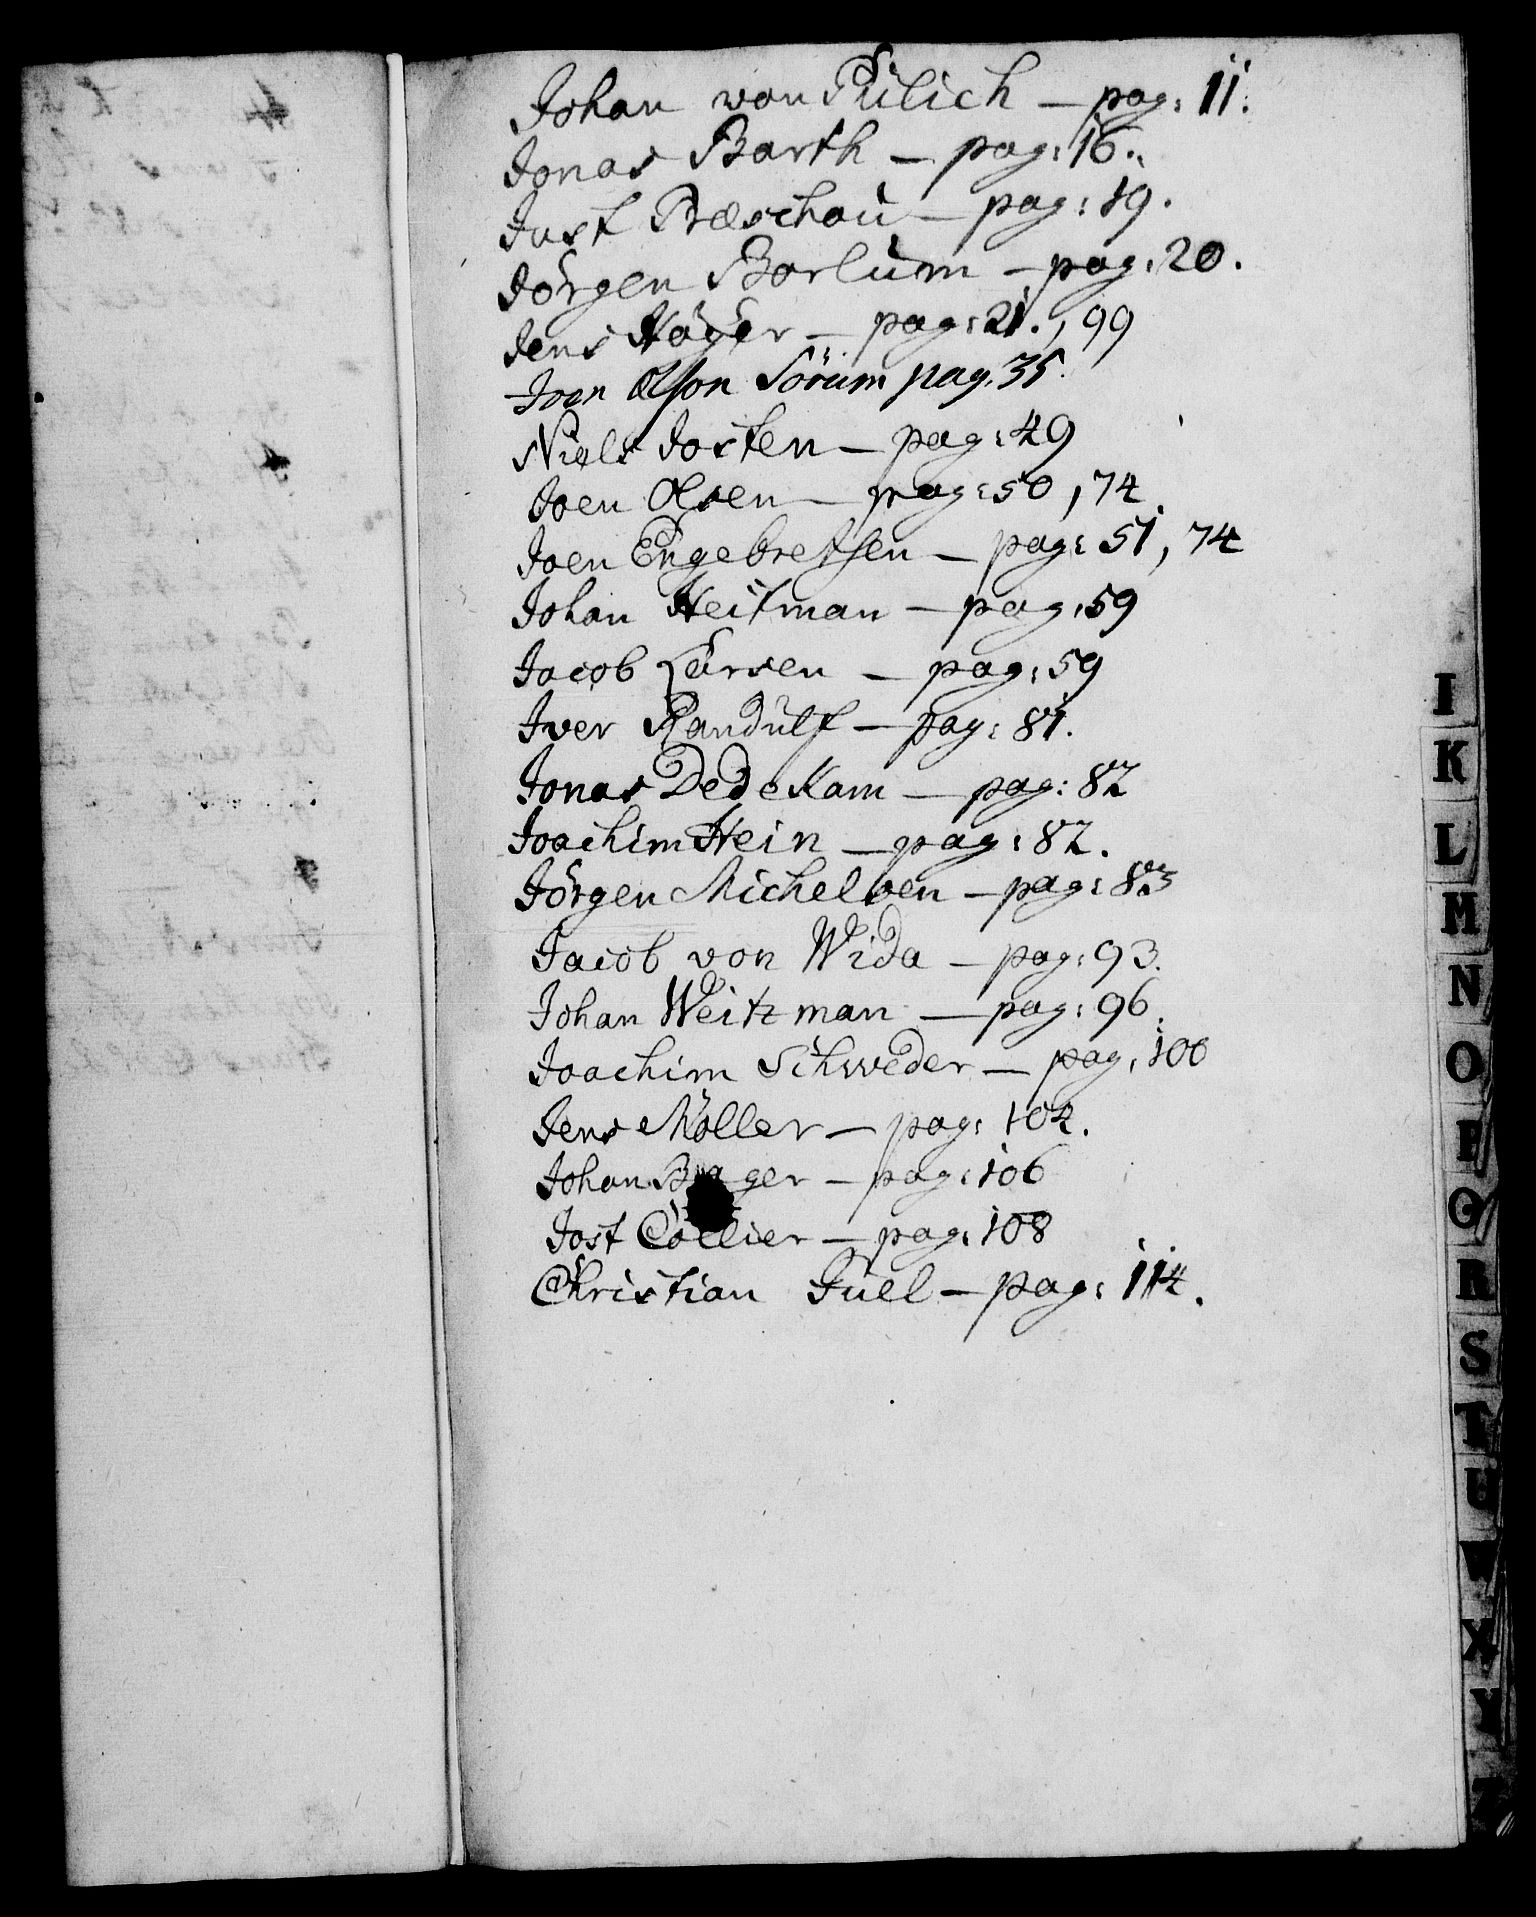 Johan von Pülich — pag: 11.
Jonas Barth — pag: 16.
Just Præschou — pag: 19.
Jörgen Borlum — pag: 20.
Jens Höyer — pag: 21., 99
Joen Olson Sörum pag. 35.
Niels Josten — pag: 49
Joen Olsen — pag: 50, 74
Joen Engebretsen — pag: 51, 74
Johan Heitman — pag: 59
Jacob Larsen — pag: 59
Iver Randulf — pag: 81.
Jonas Dedekam — pag: 82
Joachim Hein — pag: 82.
Jörgen Michelsen — pag: 83
Jacob von Wida — pag: 93.
Johan Weitzman — pag: 96.
Joachim Schweder — pag: 100
Jens Möller — pag: 104.
Johan — pag: 106
Jost Collier — pag: 108
Christian Juel — pag: 114.
I
K
L
M
N
O
P
Q
R
S
T
U
W
X
Y
Z